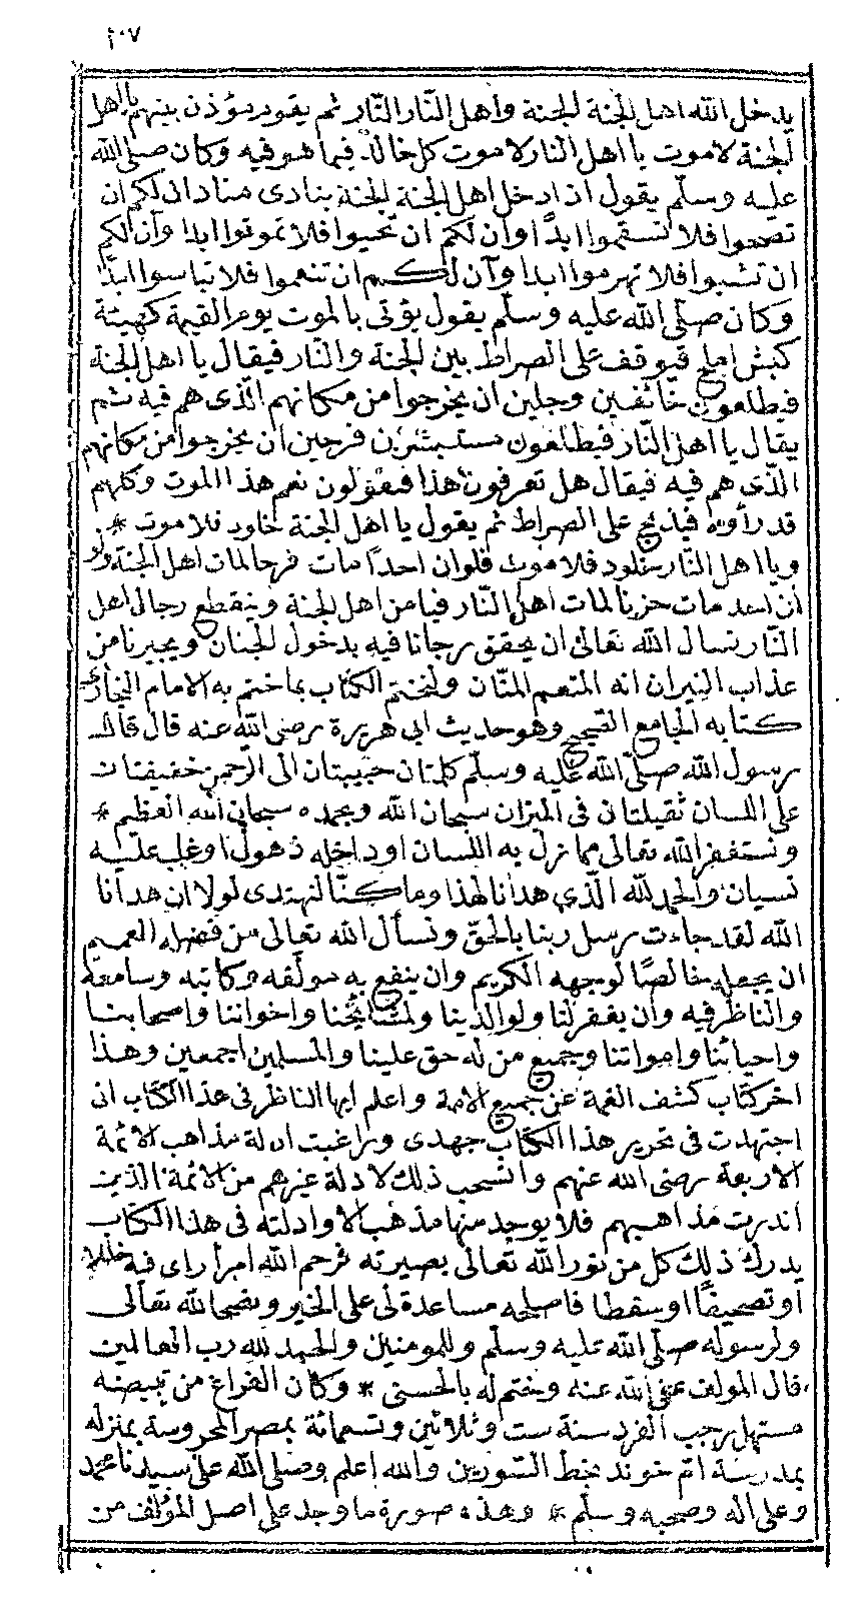 ٢٠٧
يدخل الله اهل الجنة الجنة واهل النار النار ثم يقوم مؤذن بينهم يا اهل
الجنة لا موت يا اهل النار لا موت كل خالد فيما هو فيه وكان صلى الله
عليه وسلم يقول اذا دخل اهل الجنة الجنة ينادى مناد ان لكم ان
تصحوا فلا تسقموا ابدًا وان لكم ان تحيوا فلا تموتوا ابدا وان لكم
ان تشبوا فلا تهرموا ابدا وان لكم ان تنعموا فلا تباسوا ابدًا
وكان صلى الله عليه وسلم يقول يؤتى بالموت يوم القيمة كهيئة
كبش املح فيوقف على الصراط بين الجنة والنار فيقال يا اهل الجنة
فيطلعون خائفين وجلين ان يخرجوا من مكانهم الذى هم فيه ثم
يقال يا اهل النار فيطلعون مستبشرين فرحين ان يخرجوا من مكانهم
الذى هم فيه فيقال هل تعرفون هذا فيقولون نعم هذا الموت وكلهم
قد رأوه فيذبح على الصراط ثم يقول يا اهل الجنة خلود فلا موت *
ويا اهل النار خلود فلا موت فلو ان احدًا مات فرحا لمات اهل الجنة ولو
ان احد مات حزنا لمات اهل النار فيا من اهل الجنة وينقطع رجال اهل
النار نسال الله تعالى ان يحقق رجانا فيه بدخول الجنان ويجيرنا من
عذاب النيران انه المنعم المنان ولنختم الكتاب بما ختم به الامام البخارى
كتابه الجامع الصحيح وهو حديث ابى هريرة رضى الله عنه قال قال
رسول الله صلى الله عليه وسلم كلمتان حبيبتان الى الرحمن خفيفتان
على اللسان ثقيلتان فى الميزان سبحان الله وبحمده سبحان الله العظيم *
ونستغفر الله تعالى مما نزل به اللسان او داخله ذهول او غلب عليه
نسيان والحمد لله الذي هدانا لهذا وما كنا لنهتدى لولا ان هدانا
الله لقد جاءت رسل ربنا بالحق ونسأل الله تعالى من فضله العميم
ان يجعله خالصًا لوجهه الكريم وان ينفع به مؤلفه وكاتبه وسامعه
والناظر فيه وان يغفر لنا ولوالدينا ولمشائخنا واخواننا واصحابنا
واحيائنا وامواتنا وجميع من له حق علينا والمسلمين اجمعين وهذا
اخر كتاب كشف الغمة عن جميع الامة واعلم ايها الناظر فى هذا الكتاب انى
اجتهدت فى تحرير هذا الكتاب جهدى وراغبت ادلة مذاهب الائمة
الاربعة رضى الله عنهم وانسحب ذلك لادلة غيرهم من الائمة الذين
اندرت مذاهبهم فلا يوجد منها مذهب الا وادلته فى هذا الكتاب
يدرك ذلك كل من نور الله تعالى بصيرته فرحم الله امرأ راى فيه خللا
او تصحيفًا او سقطا فاصلحه مساعدة لى على الخير ونصحا لله تعالى
ولرسوله صلى الله عليه وسلم وللمومنين والحمد لله رب العالمين
قال المولف عفى الله عنه وختم له بالحسنى * وكان الفراغ من تبييضه
مستهل رجب الفرد سنة ست وثلاثين وتسعمائة بمصر المحروسة بمنزله
بمدرسة ام خوند بخط السورين والله اعلم وصلى الله على سيدنا محمد
وعلى اله وصحبه وسلم * وهذه صورة ما وجد على اصل المؤلف من